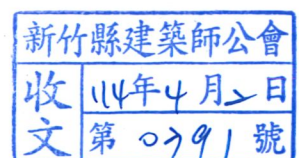 新竹縣建築師公會
收文
114年4月2日
第0791號